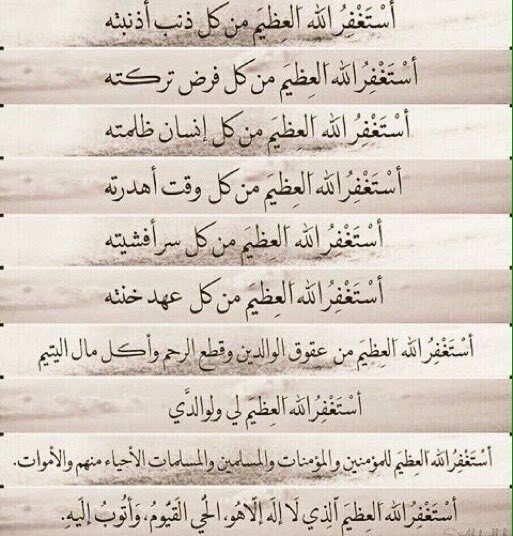 أَسْتَغْفِرُ الله العِظِيَم من كل ذنب أذنبته
أَسْتَغْفِرُ الله العِظِيَم من كل فرض تركته
أَسْتَغْفِرُ الله العِظِيَم من كل إنسان ظلمته
أَسْتَغْفِرُ الله العِظِيَم من كل وقت أهدرته
أَسْتَغْفِرُ الله العِظِيَم من كل سر أفشيته
أَسْتَغْفِرُ الله العِظِيَم من كل عهد خنته
أَسْتَغْفِرُ الله العِظِيَم من عقوق الوالدين وقطع الرحم وأكل مال اليتيم
أَسْتَغْفِرُ الله العِظِيَم لي ولوالدَّي
أَسْتَغْفِرُ الله العِظِيَم للمؤمنين والمؤمنات والمسلمين والمسلمات الأحياء منهم والأموات.
أَسْتَغْفِرُ الله العِظِيَم الَّذِي لَا إِلَهَ إِلَّا هُوَ، الْحَي القَيُّومُ، وَأَتُوبُ إِلَيهِ.